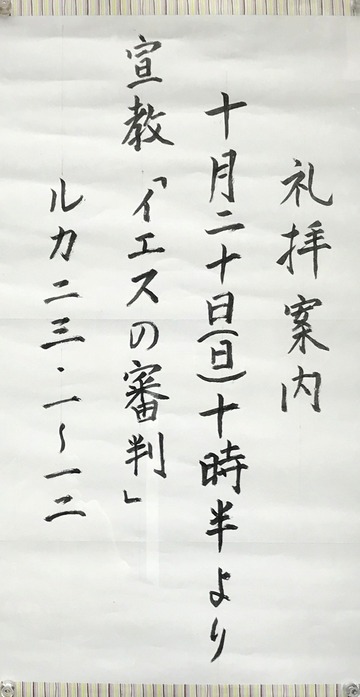 礼拝案内
十月二十日(日)十時半より
宣教「イエスの審判」
ルカ二三・一〜一二